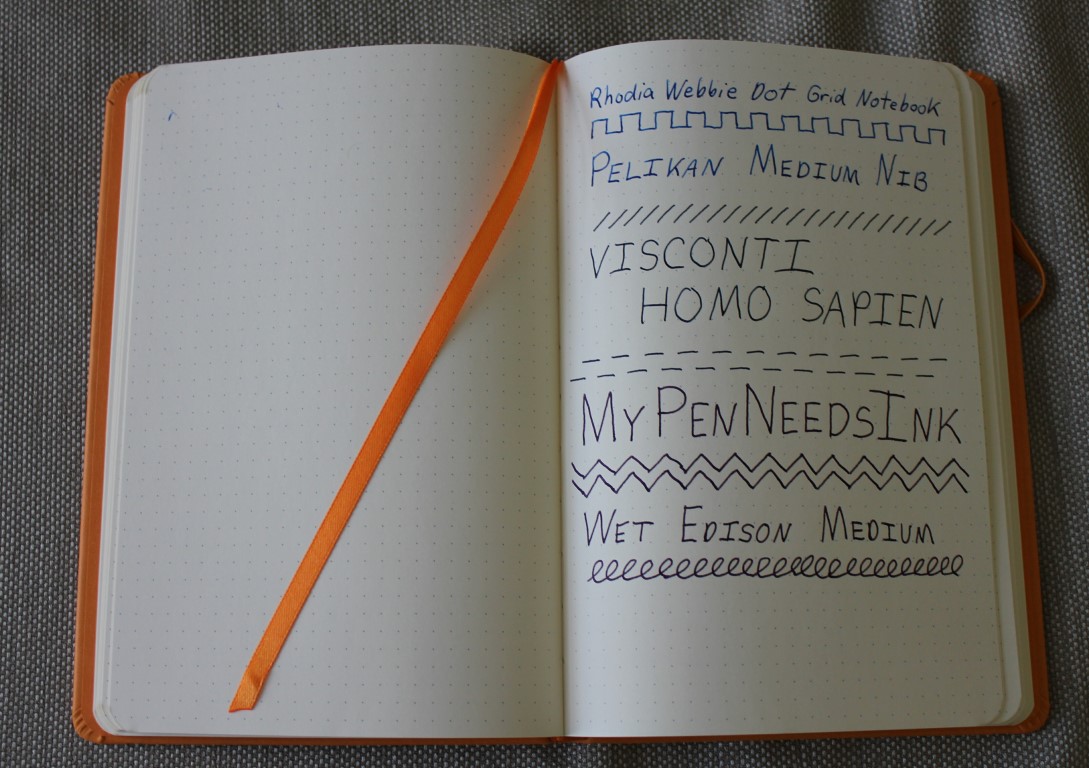 Rhodia Webbie Dot Grid Notebook
PELIKAN MEDIUM NIB
VISCONTI
HOMO SAPIEN
MYPENNEEDSINK
WET EDISON MEDIUM